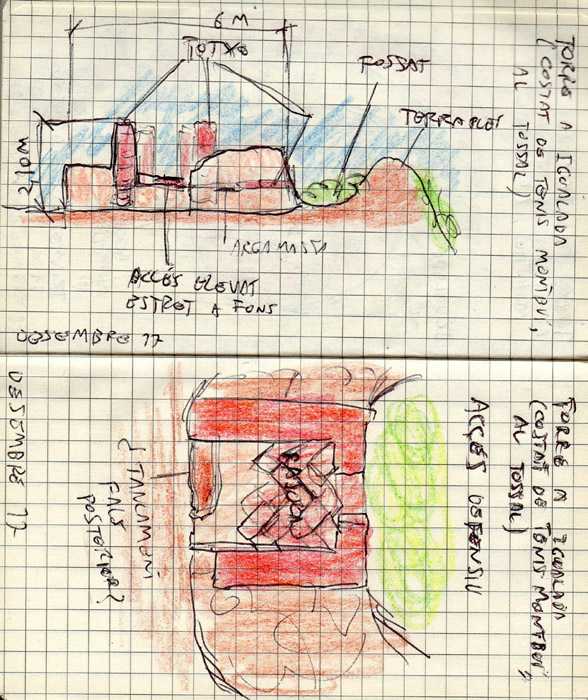 6 M
TOTXO
FOSSAT
TERRAPLÈ
2,10 M
ARGAMASSA
ACCÉS ELEVAT
ESTRET A FONS
DESEMBRE 17
TORRE A IGUALADA
(COSTAT DE TENIS MONTBUI,
AL TOSSAL)
DESEMBRE 17
¿TANCAMENT
FALS
POSTERIOR?
ACCÉS DEFENSIU
TORRE A IGUALADA
(COSTAT DE TENIS MONTBUI,
AL TOSSAL)